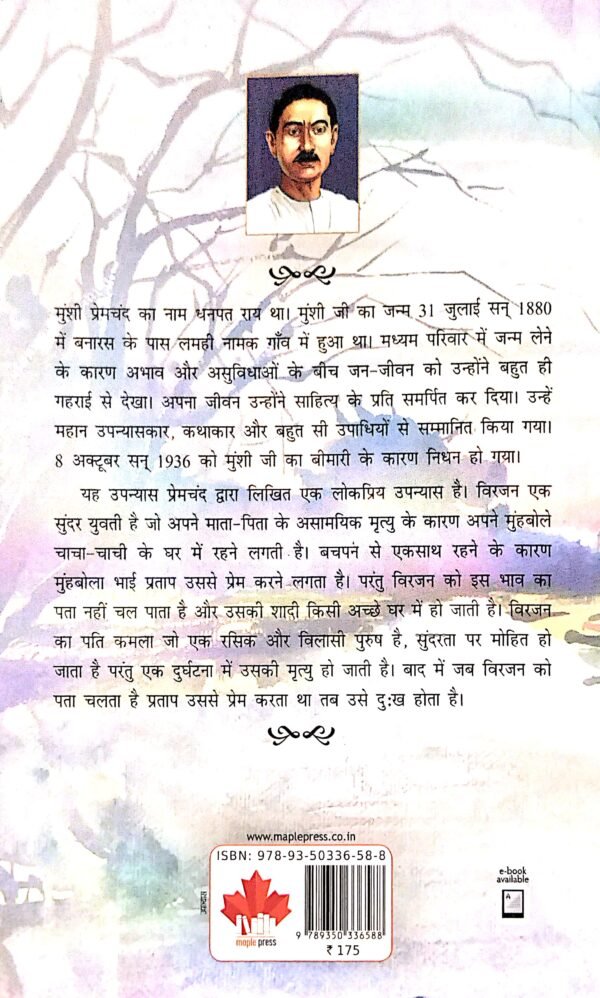 मुंशी प्रेमचंद का नाम धनपत राय था। मुंशी जी का जन्म 31 जुलाई सन् 1880
में बनारस के पास लमही नामक गाँव में हुआ था। मध्यम परिवार में जन्म लेने
के कारण अभाव और असुविधाओं के बीच जन-जीवन को उन्होंने बहुत ही
गहराई से देखा। अपना जीवन उन्होंने साहित्य के प्रति समर्पित कर दिया। उन्हें
महान उपन्यासकार, कथाकार और बहुत सी उपाधियों से सम्मानित किया गया।
8 अक्टूबर सन् 1936 को मुंशी जी का बीमारी के कारण निधन हो गया।
यह उपन्यास प्रेमचंद द्वारा लिखित एक लोकप्रिय उपन्यास है। विरजन एक
सुंदर युवती है जो अपने माता-पिता के असामयिक मृत्यु के कारण अपने मुंहबोले
चाचा-चाची के घर में रहने लगती है। बचपन से एकसाथ रहने के कारण
मुंहबोला भाई प्रताप उससे प्रेम करने लगता है। परंतु विरजन को इस भाव का
पता नहीं चल पाता है और उसकी शादी किसी अच्छे घर में हो जाती है। विरजन
का पति कमला जो एक रसिक और विलासी पुरुष है, सुंदरता पर मोहित हो
जाता है परंतु एक दुर्घटना में उसकी मृत्यु हो जाती है। बाद में जब विरजन को
पता चलता है प्रताप उससे प्रेम करता था तब उसे दु:ख होता है।
www.maplepress.co.in
ISBN: 978-93-50336-58-8
maple press
9 789350 336588
₹ 175
e-book
available
A